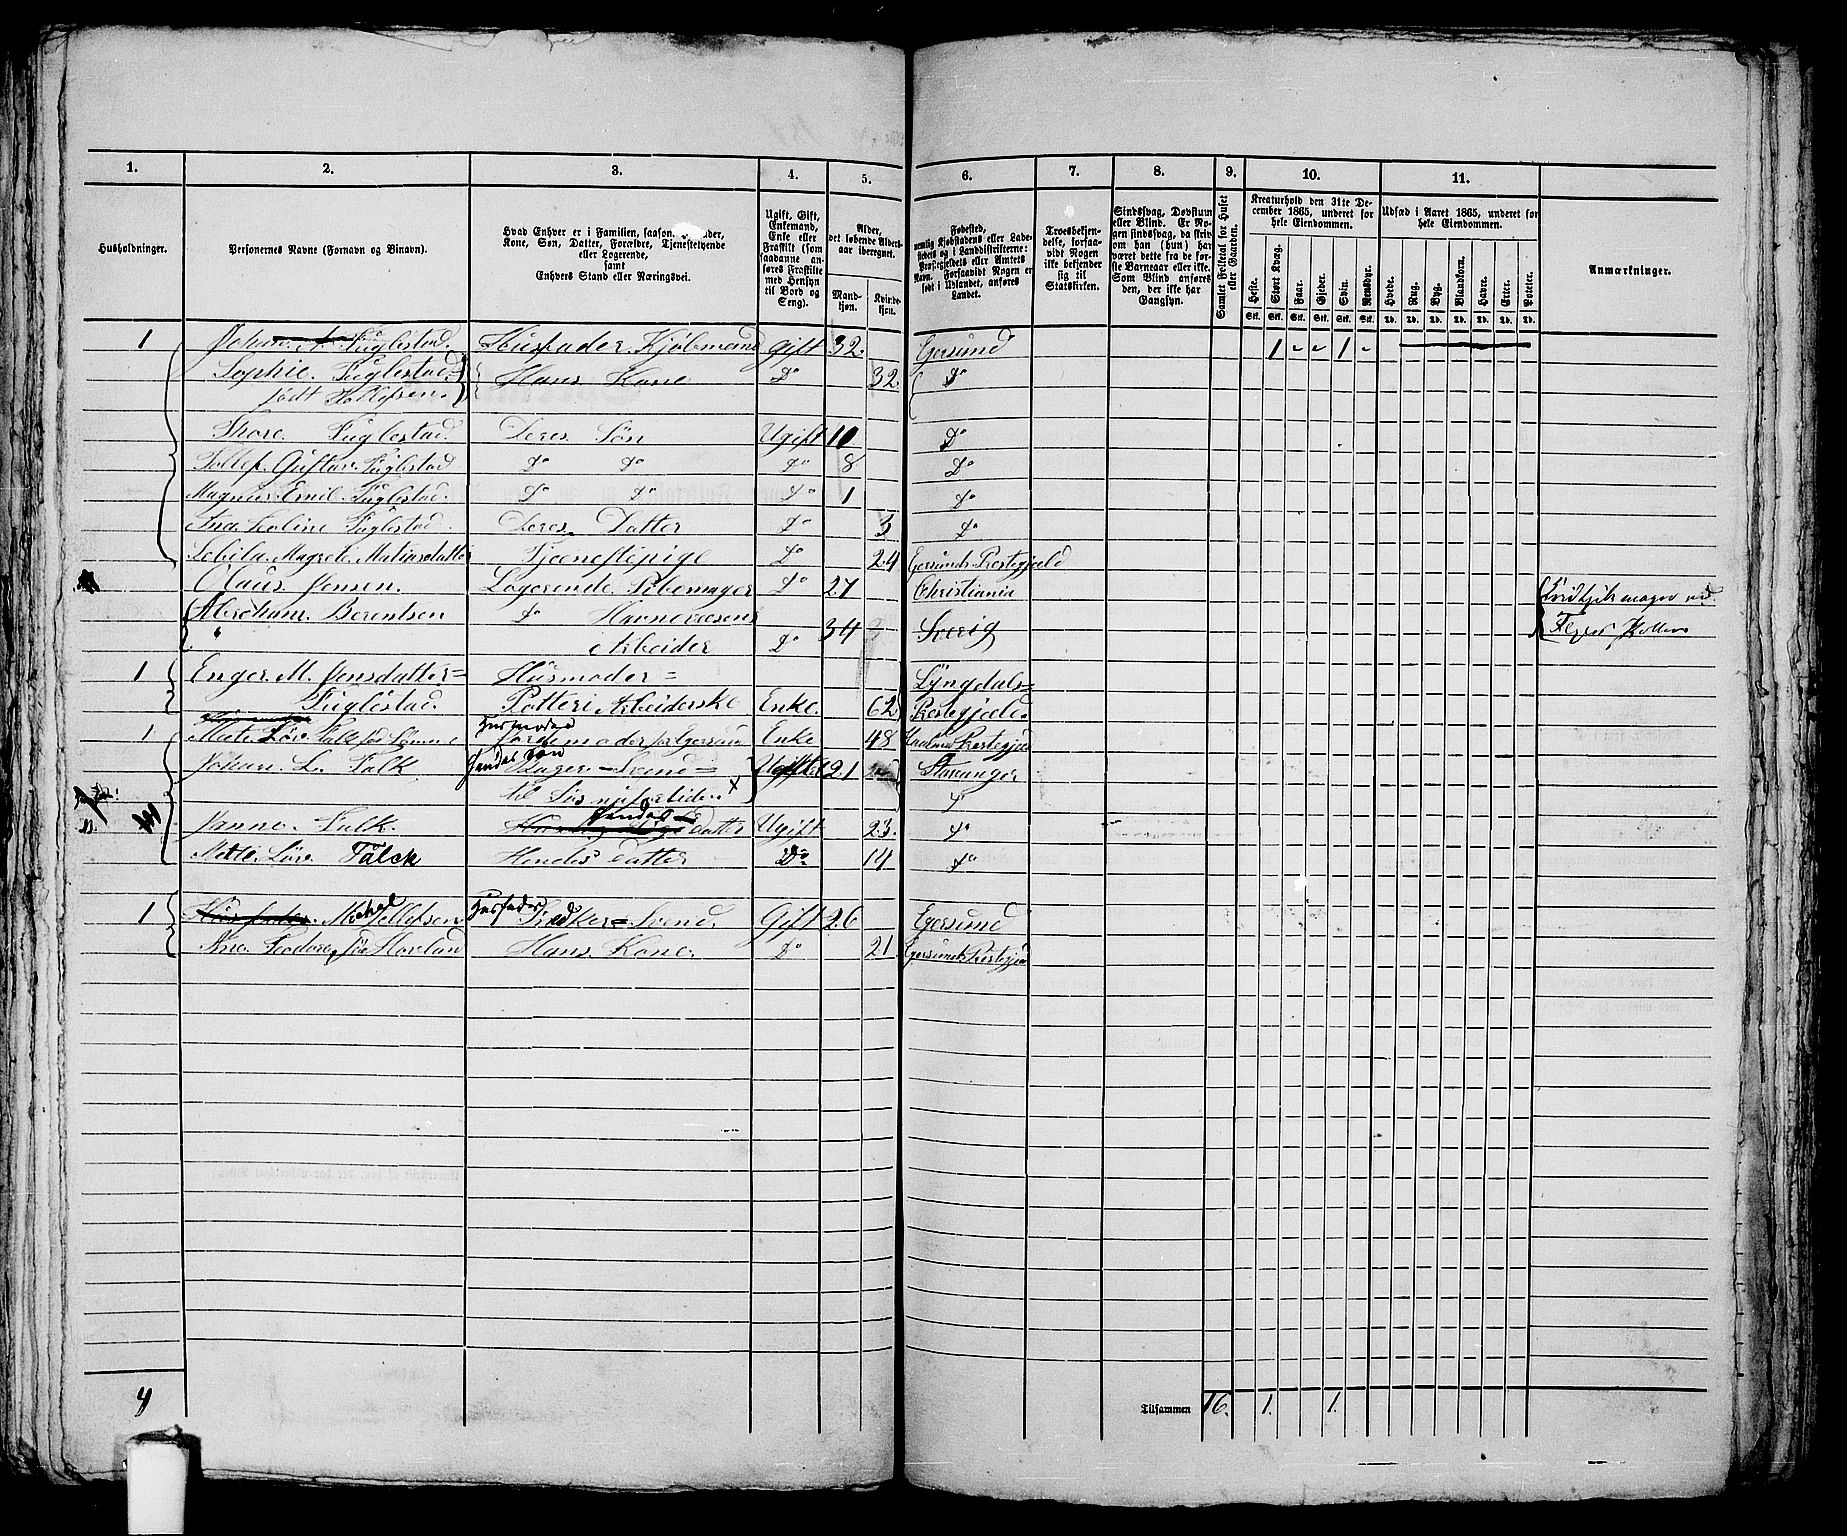 1. 2. 3. 4. 5. 6. 7. 8. 9. 10. 11.
Husholdninger.
Personernes Navne (Fornavn og Binavn).
Hvad Enhver er i Familien, saasom
Kone, Søn, Datter, Forældre, Tjenestetyende
eller Logerende,
samt
Enhvers Stand eller Næringsvei.
Ugift, Gift,
Enkemand,
Enke eller
Fraskilt (som
saadanne an-
føres Fraskilte
med Hensyn
til Bord og
Seng).
Alder,
det løbende Alders-
aar iberegnet.
Mand-
kjøn.
Kvinde-
kjøn.
Fødested,
nemlig Kjøbstadens eller Lade-
stedets og i Landdistrikterne:
Præstegjeldets eller Amtets
Navn. Forsaavidt Nogen er
født i Udlandet, anføres
Landet.
Troesbekjen-
delse, forsaa-
vidt Nogen
ikke bekjender
sig til
Statskirken.
Sindssvag, Døvstum
eller Blind. Er No-
gen sindssvag, da skriv
om han (hun) har
været dette fra de før-
ste Barneaar eller ikke.
Som Blind anføres
den, der ikke har
Gangsyn.
Samlet Folketal for Huset
eller Gaarden.
Kreaturhold den 31te De-
cember 1865, underet for
hele Eiendommen.
Heste. Stort Kvæg. Faar. Gjeder. Svin. Rensdyr.
Stk. Stk. Stk. Stk. Stk. Stk.
Udsæd i Aaret 1865, underet for
hele Eiendommen.
Hvede. Rug. Byg. Blandkorn. Havre. Erter. Poteter.
Td. Td. Td. Td. Td. Td. Td.
Anmærkninger.
1 Johan A. Fuglestad. Husfader. Kjøbmand gift 32. Egersund 1 - - 1 -
Sophie. Fuglestad Hans Kone Do 32 Do
født Tollefsen.
Thore. Fuglestad. Deres Søn Ugift 10 Do
Tollef. Gustav. Fuglestad Do Do Do 8 Do
Magnus. Emil. Fuglestad. Do Do Do 1 Do
Ina Coline Fuglestad. Deres Datter Do 3 Do
Magrete. Tjenestepige Do 24 Egersunds Prestegjæld
Olaus Jensen. Logerende Do 27 Christiania
Abraham Berentsen Do Havnevæsens 34 Sverig
Arbeider Do
1 Enger. M. Jensdatter= Husmoder= Lyngdals=
Fuglestad. Potteri Arbeiderske Enke. 62 Prestegjæld.
1 Husmoder Jordemoder for Egersund Enke 48
Johan. L. Falk Hendes Søn Svend= 21 Stavanger
Do
Janne. Falk. Hendes Datter Ugift 23. Do
Falck Hendes Datter Do 14 Do
1 Husfader Svend. Gift 26 Egersund
Hovland Hans. Kone. Do 21 Egersunds Prestegjæld
4 Tilsammen 16. 1. 1.